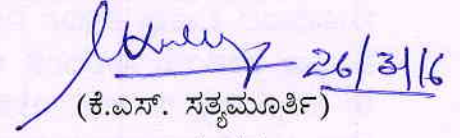 26/3/16
(ಕೆ.ಎಸ್. ಸತ್ಯಮೂರ್ತಿ)